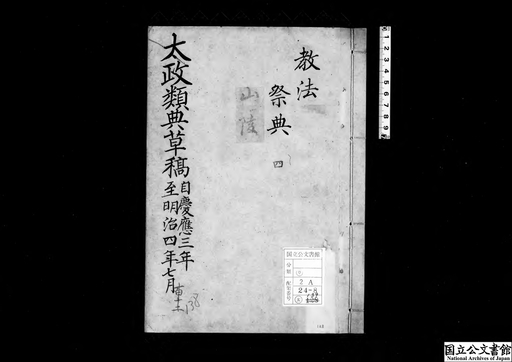 教法
祭典 四
山陵
太政類典草稿 自慶應三年
至明治四年七月
138
国立公文書館
分類
配架番号
2 A
24-8
国立公文書館
National Archives of Japan